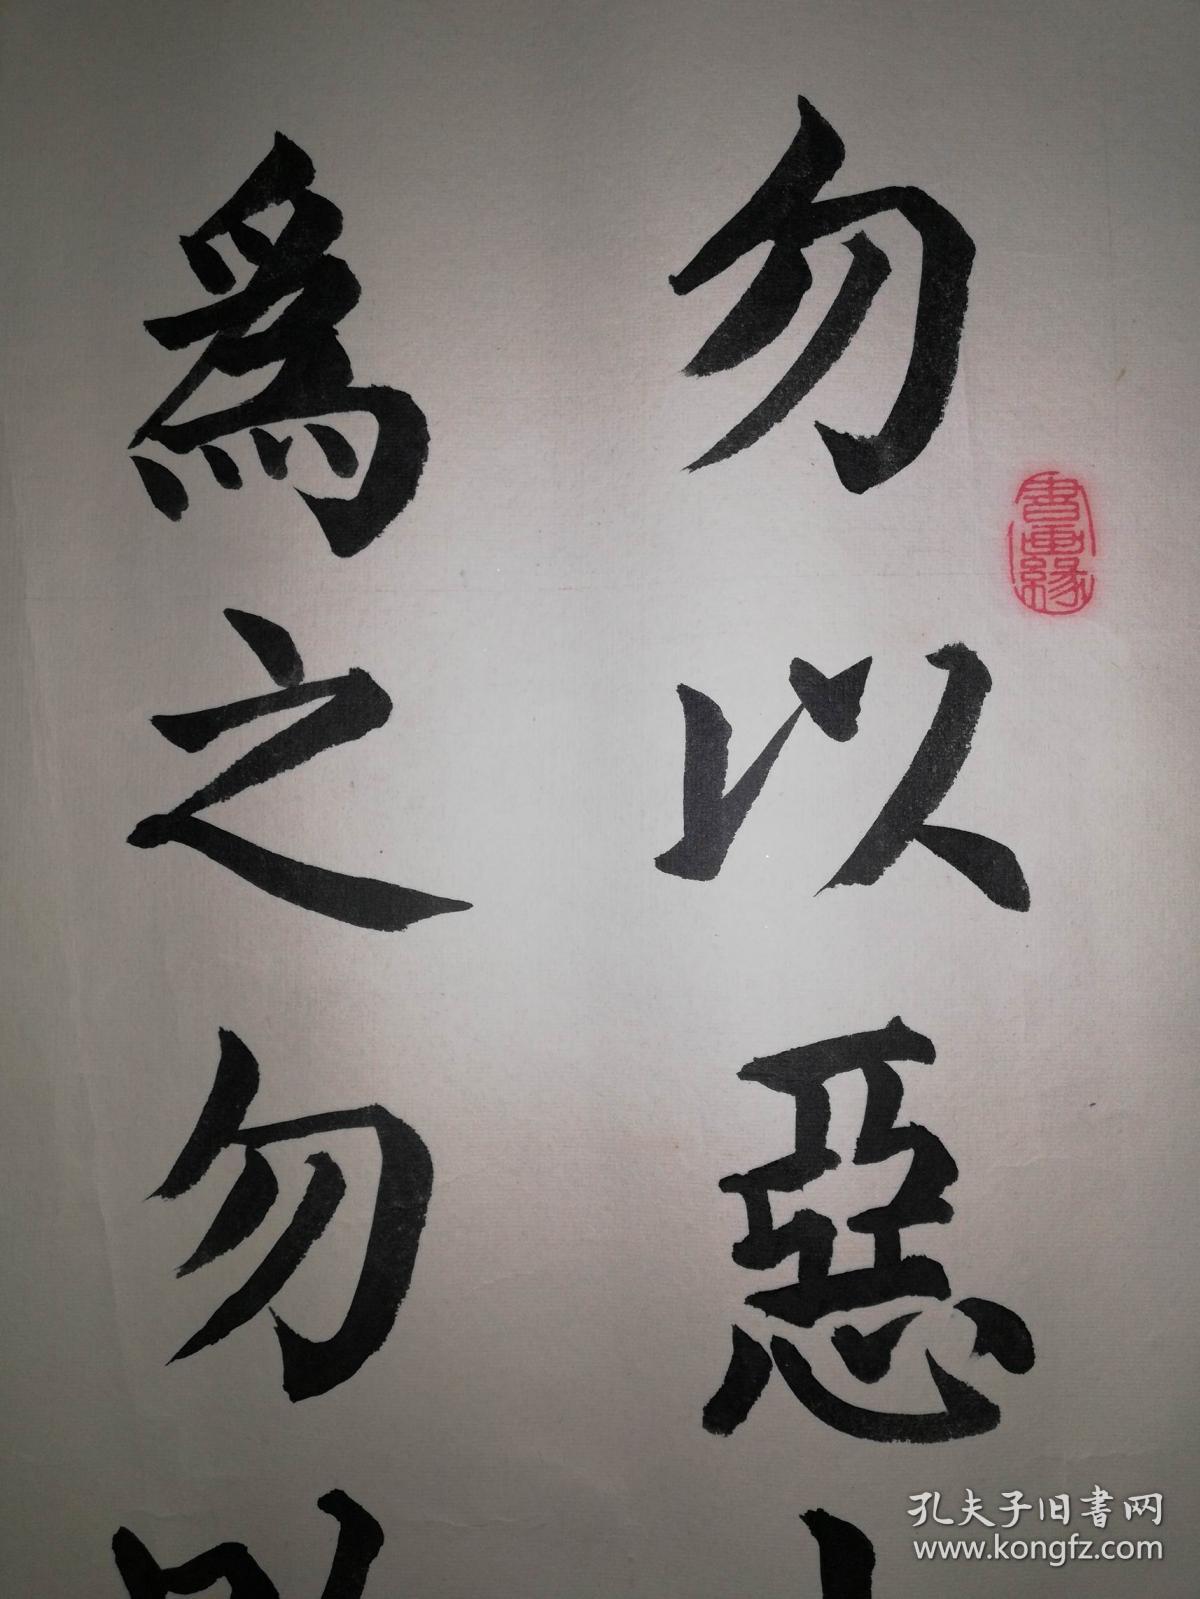 勿以惡
爲之勿
書畫緣
孔夫子旧書网
www.kongfz.com